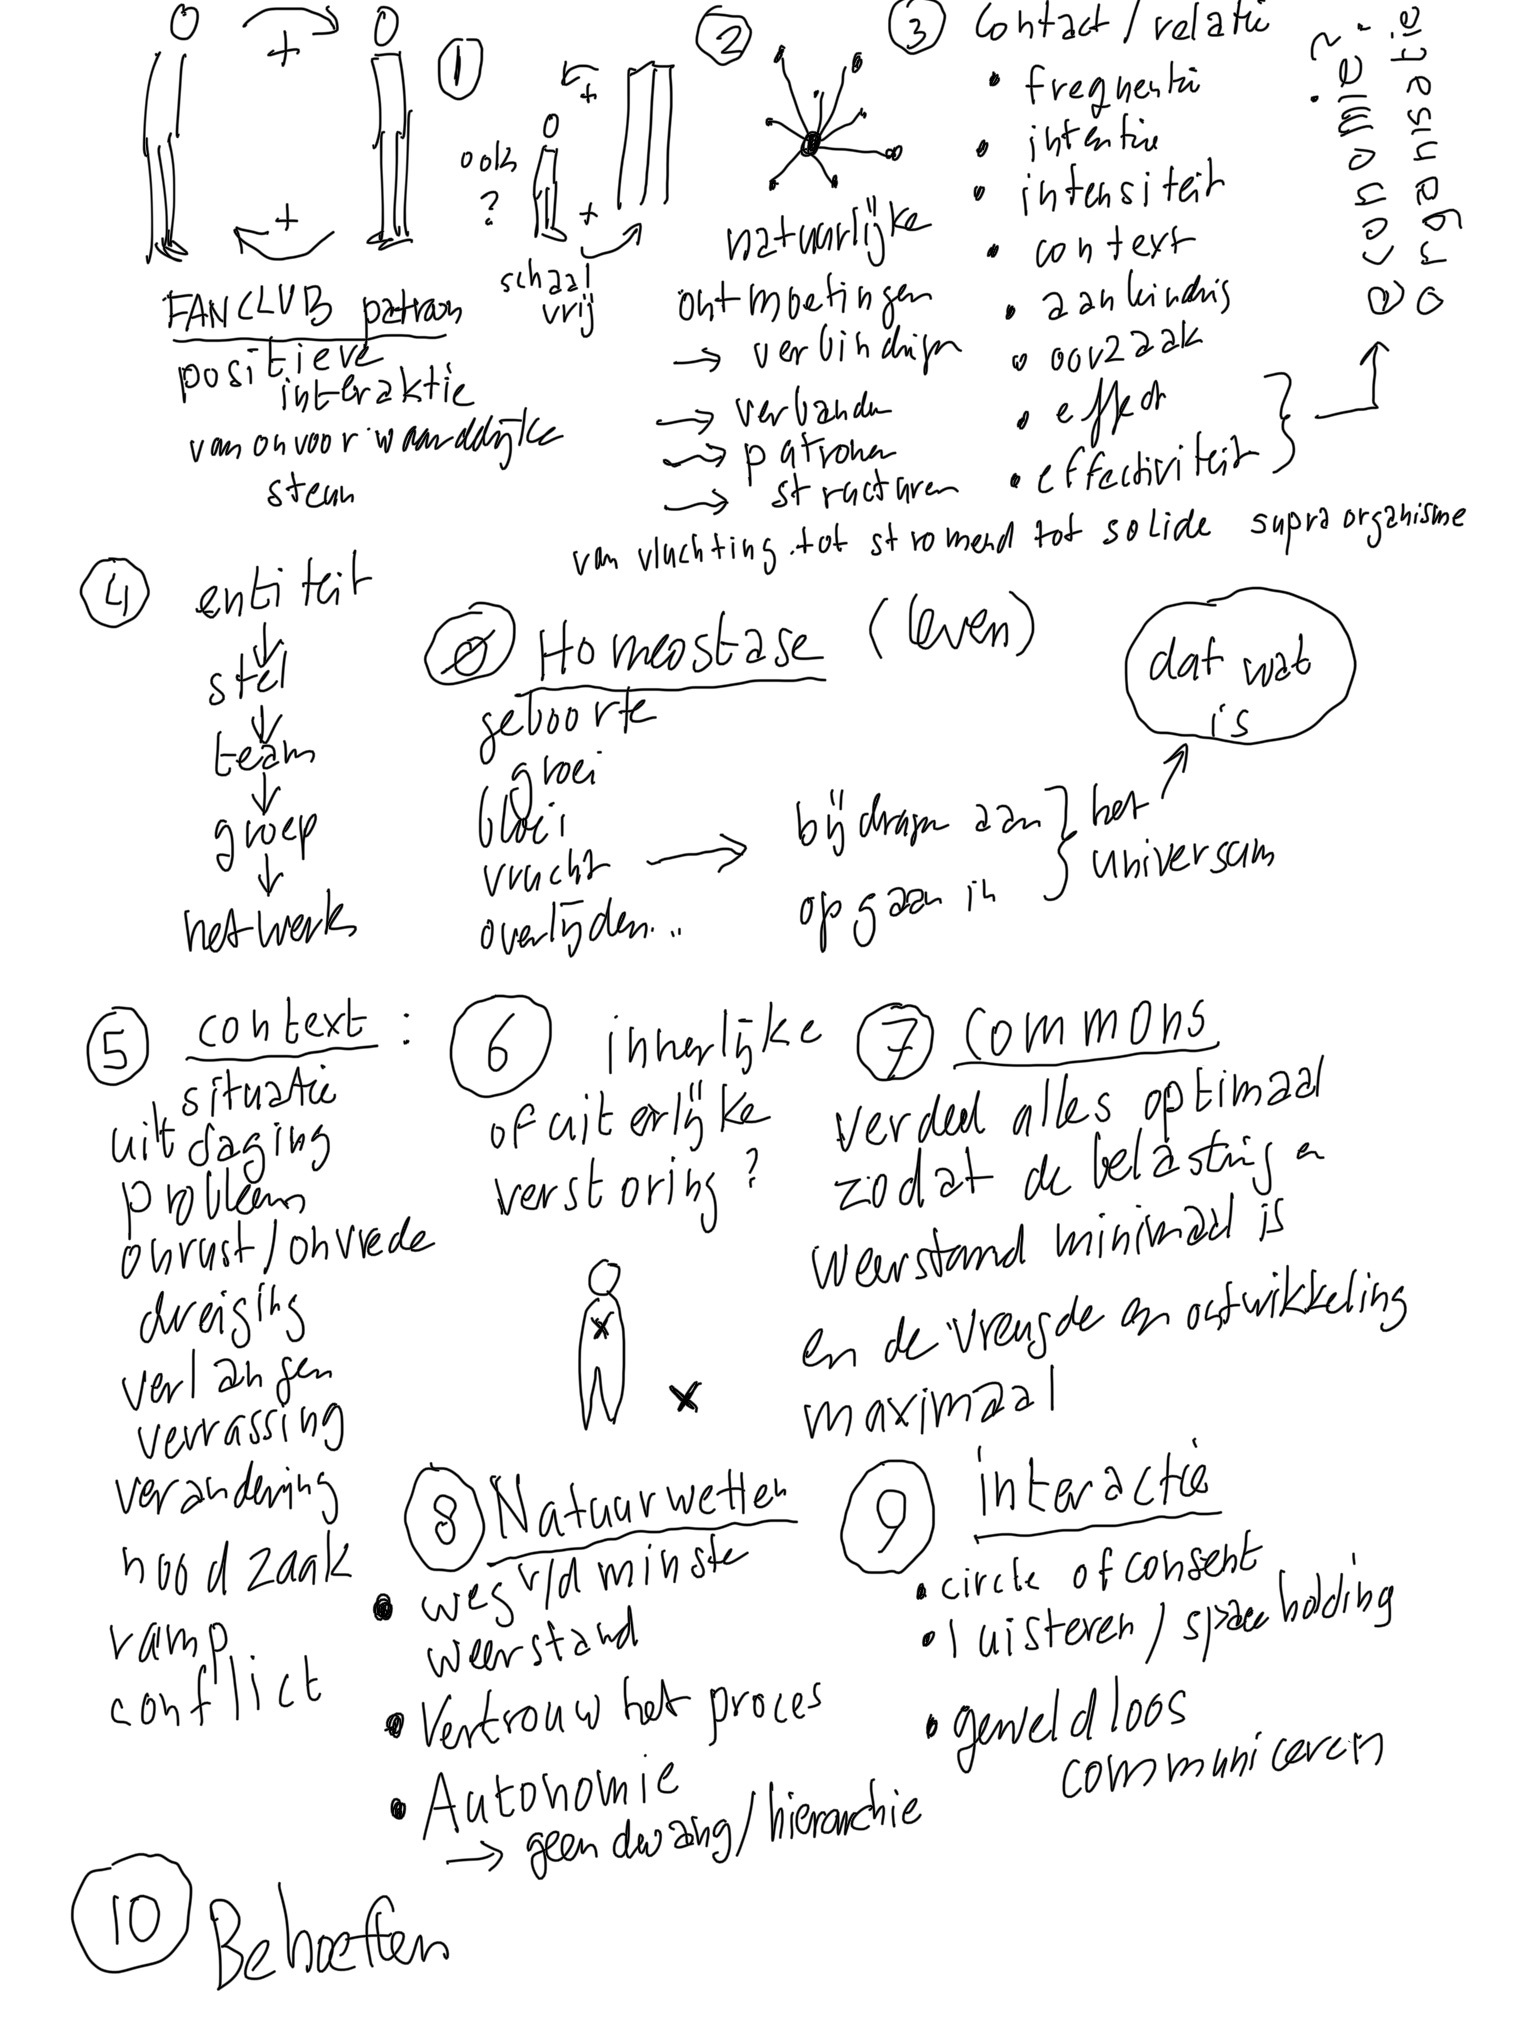 +
+
FANCLUB patroon
positieve
interaktie
van onvoorwaarddlijke
steun
1
ook
?
+
+
schaal
vrij
2
natuurlijke
ontmoetingen
→ verbindingen
→ verbanden
→ patronen
→ structuren
van vluchting tot stromend tot solide supra organisme
3 contact / relatie
• frequentie
• intentie
• intensiteit
• context
• aankindnis
• oorzaak
• effect
• effectiviteit
economie?
organisatie
4 entiteit
↓
stel
↓
team
↓
groep
↓
netwerk
0 Homeostase (leven)
geboorte
groei
bloei
vrucht →
overlijden...
bijdragen aan
opgaan in
het
universum
dat wat
is
5 context :
situatie
uitdaging
probleem
onrust/onvrede
dreiging
verlangen
verrassing
verandering
noodzaak
ramp
conflict
6 innerlijke
of uiterlijke
verstoring?
x
x
7 COMMONS
verdeel alles optimaal
zodat de belasting en
weerstand minimaal is
en de vreugde en ontwikkeling
maximaal
8 Natuurwetten
• weg v/d minste
weerstand
• Vertrouw het proces
• Autonomie
→ geen dwang/hierarchie
9 interactie
• circle of consent
• luisteren / space holding
• geweldloos
communiceren
10 Behoeften